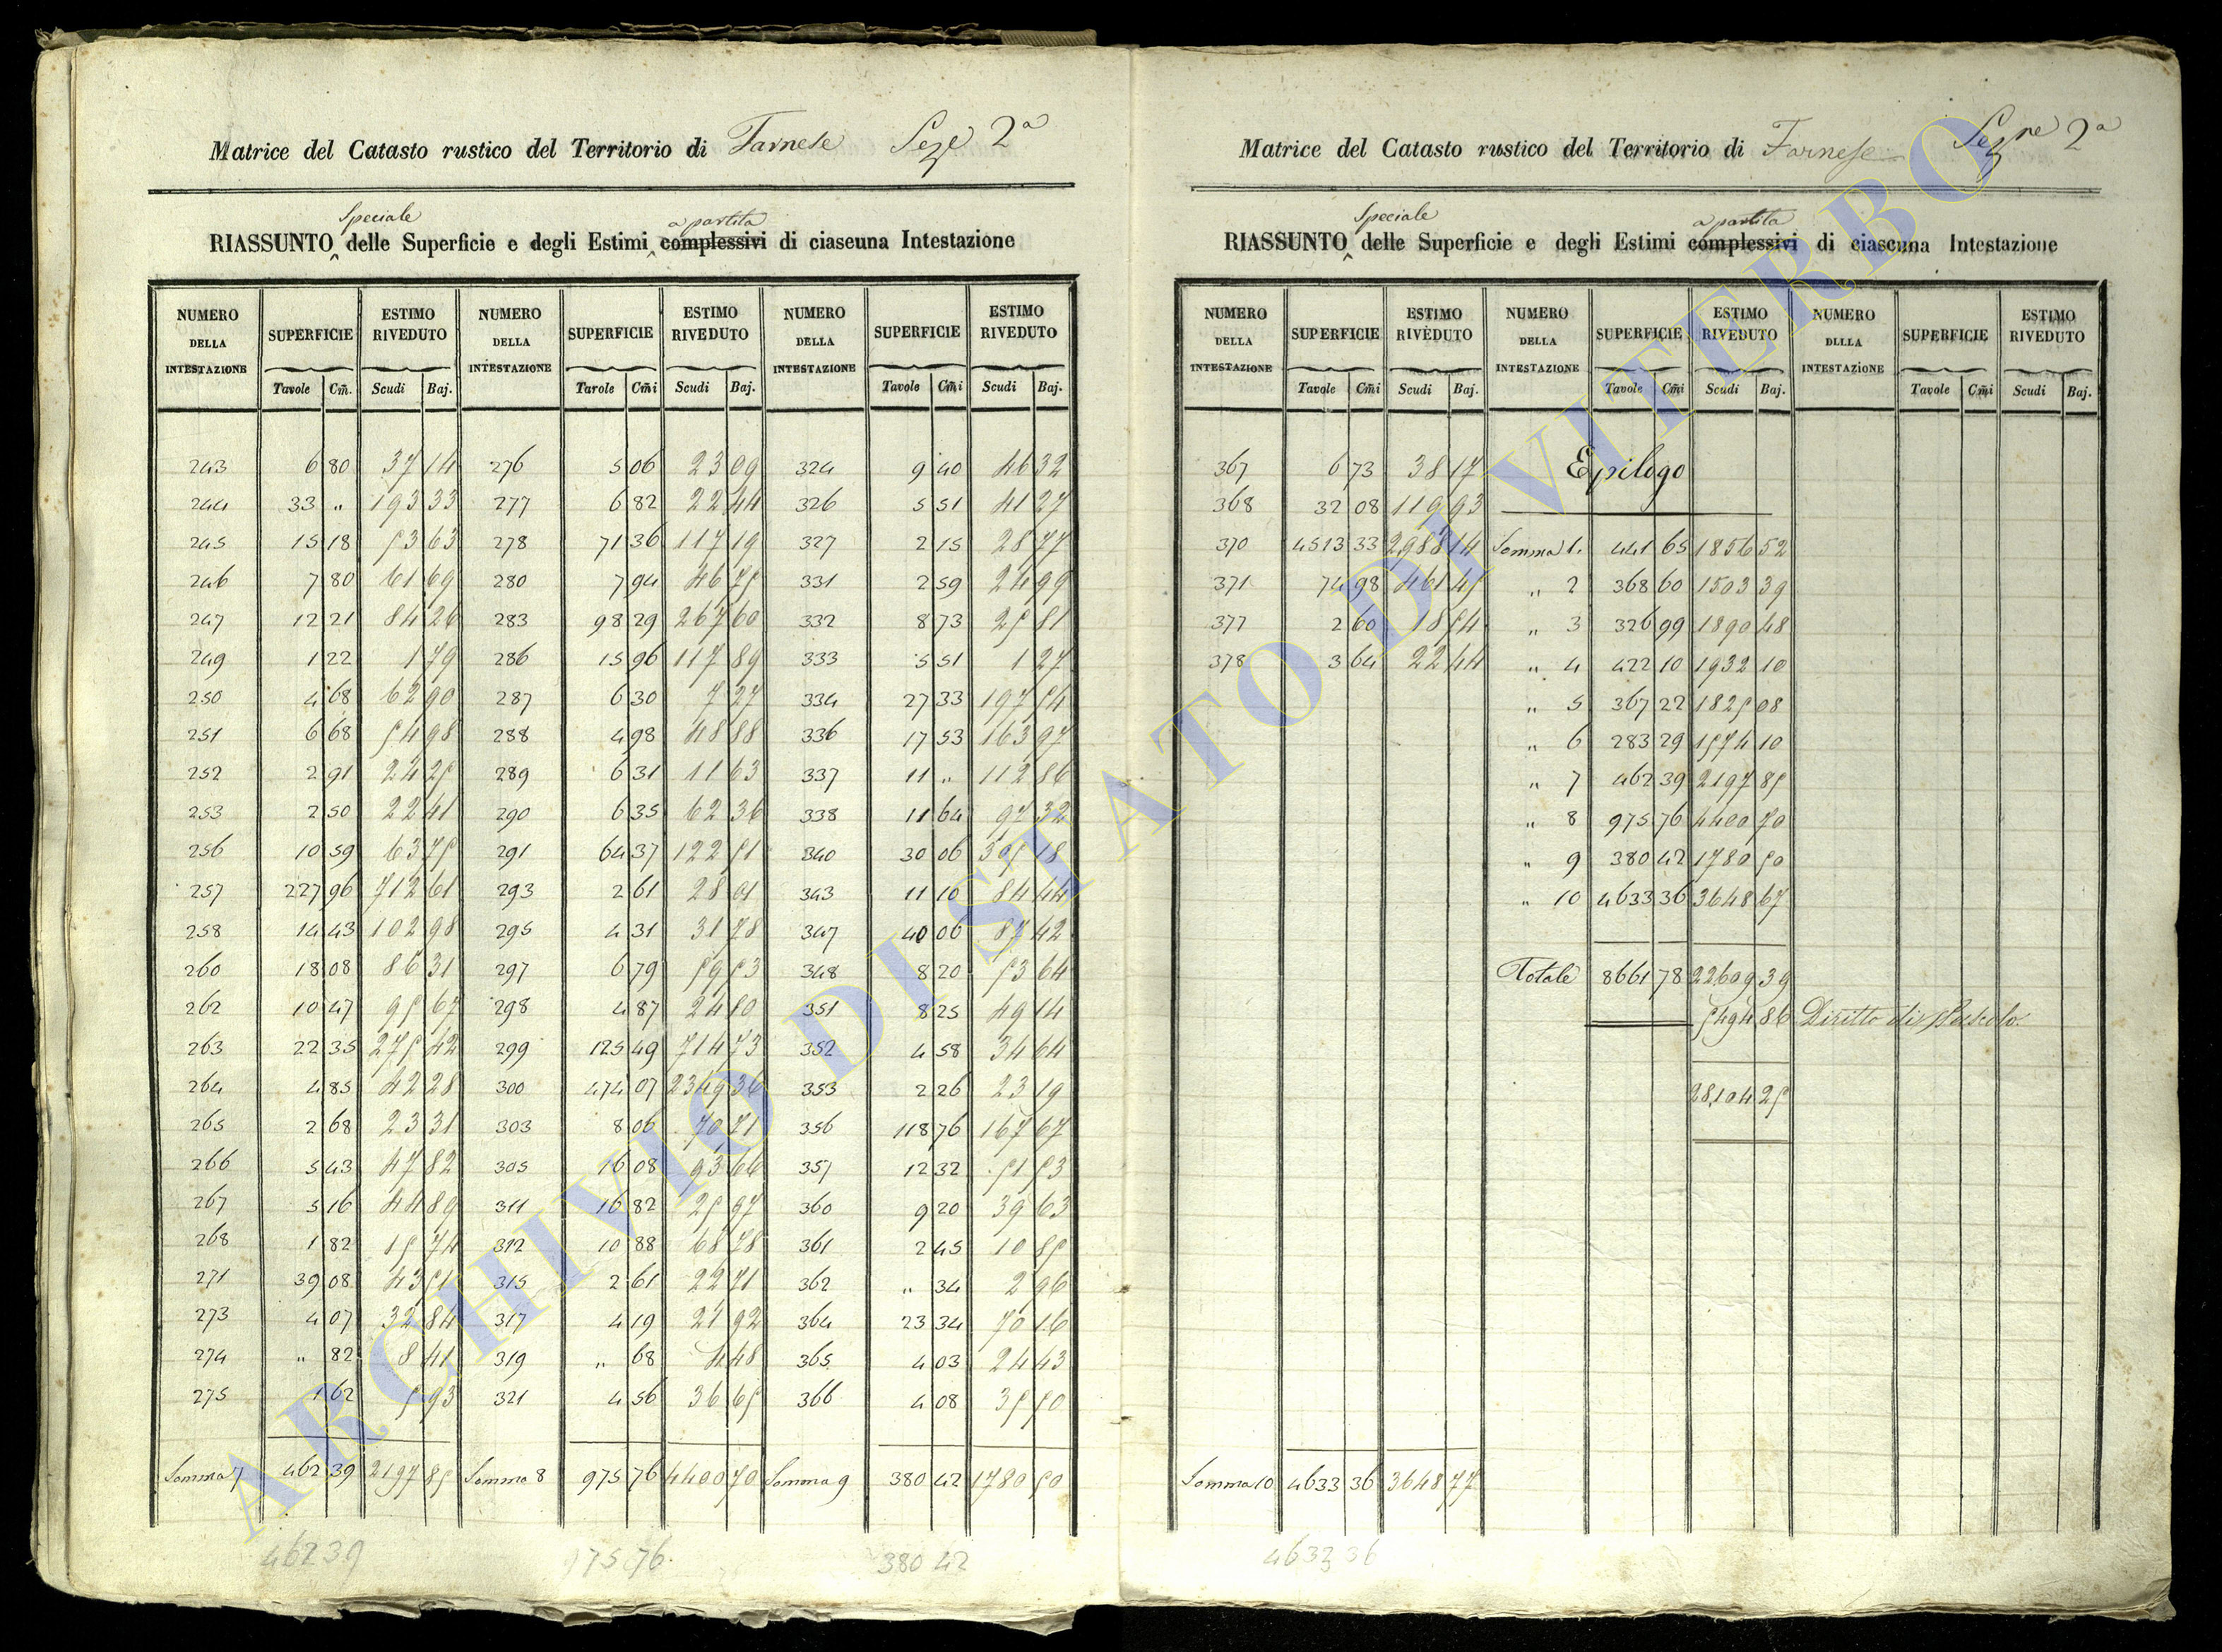 Matrice del Catasto rustico del Territorio di Farnese Seze 2a
Speciale a partita
RIASSUNTO delle Superficie e degli Estimi complessivi di ciascuna Intestazione
NUMERO DELLA INTESTAZIONE SUPERFICIE ESTIMO RIVEDUTO NUMERO DELLA INTESTAZIONE SUPERFICIE ESTIMO RIVEDUTO NUMERO DELLA INTESTAZIONE SUPERFICIE ESTIMO RIVEDUTO
Tavole Cm̃. Scudi Baj. Tavole Cm̃i Scudi Baj. Tavole Cm̃i Scudi Baj.
243 6 80 37 14 276 5 06 23 09 324 9 40 46 32
244 33 „ 193 33 277 6 82 22 44 326 5 51 41 27
245 15 18 53 63 278 71 36 117 19 327 2 15 28 77
246 7 80 61 69 280 7 94 46 75 331 2 59 24 99
247 12 21 84 26 283 98 29 267 60 332 8 73 25 81
249 1 22 1 79 286 15 96 117 89 333 5 51 1 27
250 4 68 62 90 287 6 30 7 27 334 27 33 197 54
251 6 68 54 98 288 4 98 48 88 336 17 53 163 97
252 2 91 24 25 289 6 31 11 63 337 11 „ 112 86
253 2 50 22 41 290 6 35 62 36 338 11 64 97 32
256 10 59 63 75 291 64 37 122 51 340 30 06 305 18
257 227 96 712 61 293 2 61 28 01 343 11 10 84 44
258 14 43 102 98 295 4 31 31 78 347 40 06 87 42
260 18 08 86 31 297 6 79 59 53 348 8 20 53 64
262 10 47 95 67 298 4 87 24 80 351 8 25 49 14
263 22 35 275 42 299 125 49 714 73 352 4 58 34 64
264 4 85 42 28 300 474 07 2349 36 353 2 26 23 19
265 2 68 23 31 303 8 06 70 71 356 118 76 167 67
266 5 43 47 82 305 16 08 93 66 357 12 32 51 53
267 5 16 44 89 311 16 82 25 97 360 9 20 39 63
268 1 82 15 74 312 10 88 68 78 361 2 45 10 85
271 39 08 43 51 315 2 61 22 71 362 „ 34 2 96
273 4 07 32 84 317 4 19 21 92 364 23 34 70 16
274 „ 82 8 41 319 „ 68 4 48 365 4 03 24 43
275 1 62 5 93 321 4 56 36 65 366 4 08 35 50
Somma 7 462 39 2197 85 Somma 8 975 76 4400 70 Somma 9 380 42 1780 50
462 39 975 76. 380 42
Matrice del Catasto rustico del Territorio di Farnese Sezne 2a
Speciale a partita
RIASSUNTO delle Superficie e degli Estimi complessivi di ciascuna Intestazione
NUMERO DELLA INTESTAZIONE SUPERFICIE ESTIMO RIVEDUTO NUMERO DELLA INTESTAZIONE SUPERFICIE ESTIMO RIVEDUTO NUMERO DELLA INTESTAZIONE SUPERFICIE ESTIMO RIVEDUTO
Tavole Cm̃i Scudi Baj. Tavole Cm̃i Scudi Baj. Tavole Cm̃i Scudi Baj.
367 6 73 38 17 Epilogo
368 32 08 119 93
370 4513 33 2988 14 Somma 1. 441 65 1856 52
371 74 98 461 45 „ 2 368 60 1503 39
377 2 60 18 54 „ 3 326 99 1890 48
378 3 64 22 44 „ 4 422 10 1932 10
„ 5 367 22 1825 08
„ 6 283 29 1574 10
„ 7 462 39 2197 85
„ 8 975 76 4400 70
„ 9 380 42 1780 50
„ 10 4633 36 3648 67
Totale 8661 78 22609 39
5494 86 Diritto di Pascolo.
28,104 25
Somma 10 4633 36 3648 77
4633 36
ARCHIVIO DI STATO DI VITERBO